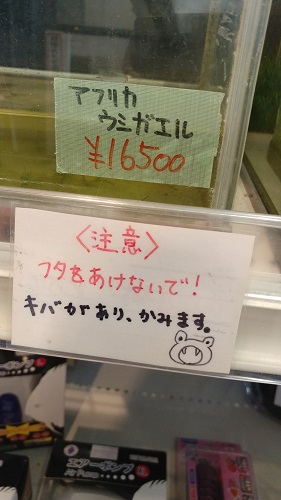 アフリカ
ウシガエル
¥16500
〈注意〉
フタをあけないで!
キバがあり、かみます。
エアーポンプ